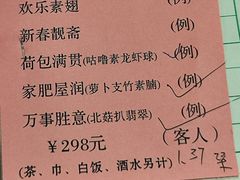 欢乐素翅 (例)
新春靓斋 (例)
荷包满贯(咕噜素龙虾球) (例)
家肥屋润(萝卜支竹素腩) (例)
万事胜意(北菇扒翡翠) (例)
￥298元 (客人)
(茶、巾、白饭、酒水另计)